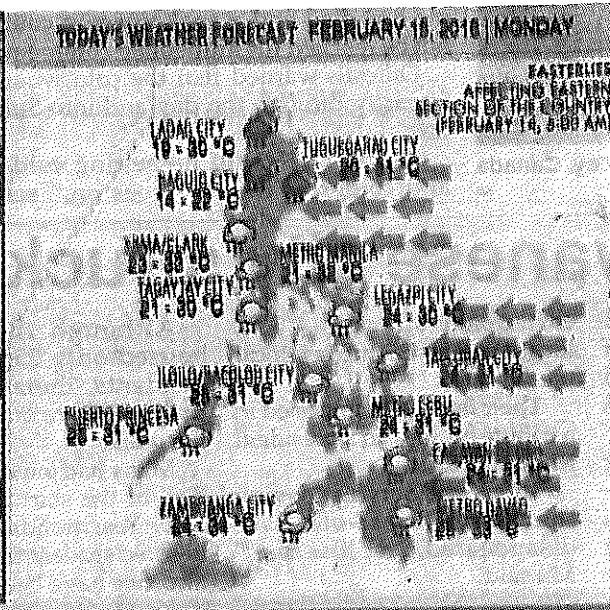 TODAY'S WEATHER FORECAST FEBRUARY 15, 2016 | MONDAY
EASTERLIES
AFFECTING EASTERN
SECTION OF THE COUNTRY
(FEBRUARY 14, 5:00 AM)
LAOAG CITY
19 - 30 °C
TUGUEGARAO CITY
20 - 31 °C
BAGUIO CITY
14 - 22 °C
SBMA/CLARK
23 - 33 °C
METRO MANILA
21 - 32 °C
TAGAYTAY CITY
21 - 30 °C
LEGAZPI CITY
24 - 30 °C
TACLOBAN CITY
24 - 31 °C
ILOILO/BACOLOD CITY
25 - 31 °C
METRO CEBU
24 - 31 °C
PUERTO PRINCESA
25 - 31 °C
CAGAYAN
24 - 31 °C
ZAMBOANGA CITY
24 - 34 °C
METRO DAVAO
25 - 33 °C